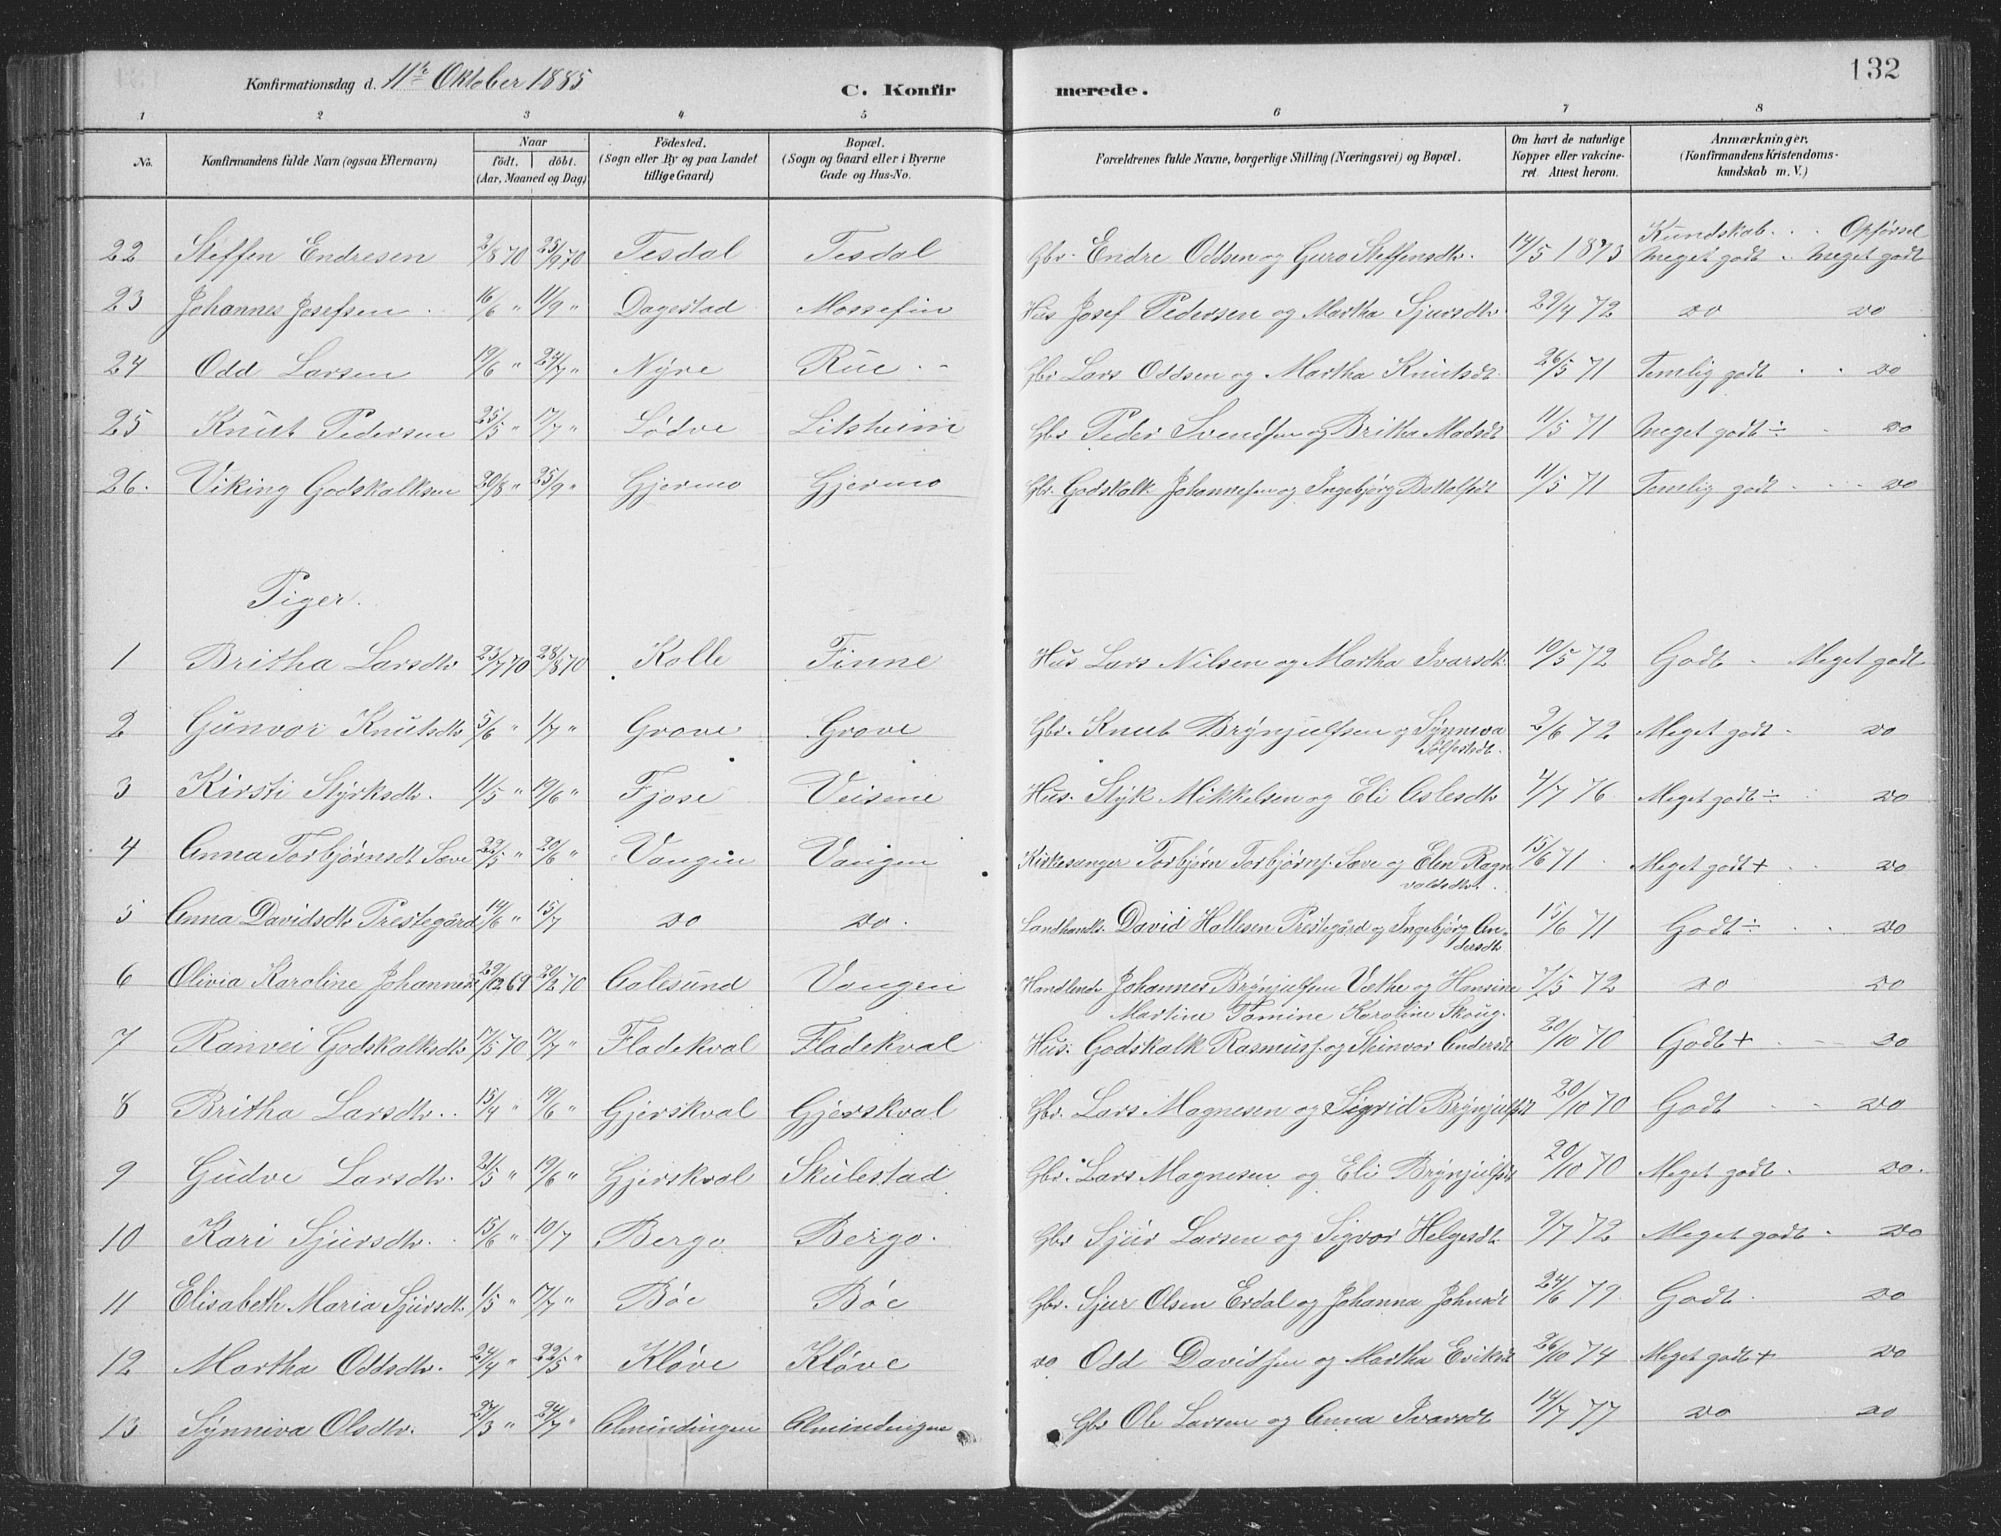 132
Konfirmationsdag d. 11te Oktober 1885
C. Konfirmerede.
1 2 3 4 5 6 7 8
No. | Konfirmandens fulde Navn (ogsaa Efternavn) | Naar födt. döbt. (Aar, Maaned og Dag) | Födested. (Sogn eller By og paa Landet tillige Gaard) | Bopæl. (Sogn og Gaard eller i Byerne Gade og Hus-No. | Forældrenes fulde Navne, borgerlige Stilling (Næringsvei) og Bopæl. | Om havt de naturlige Kopper eller vakcineret. Attest herom. | Anmærkninger. (Konfirmandens Kristendomskundskab m. V.)
Kundskab. Opførsel
22 Steffen Endresen 2/8 70 25/9 70 Tesdal Tesdal Gbr. Endre Oddsen og Guro Steffensdtr. 14/5 1873 Meget godt. Meget godt
23 Johannes Josefsen 16/6 " 11/9 " Dagestad Mossefin Hus Josef Pedersen og Martha Sjursdtr. 29/4 72 do do
24 Odd Larsen 19/6 " 24/7 " Nyre Rue Gbr Lars Oddsen og Martha Knutsdt. 26/5 71 Temlig godt do
25 Knut Pedersen 25/5 " 17/7 " Lødve Lilsheim Gbr Peder Svendsen og Britha Madsdt 11/5 71 Meget godt ÷ do
26. Viking Godskalksen 20/8 " 25/9 " Gjermo Gjermo Gbr. Godskalk Johannesen og Ingebjørg Bottolfsdt 11/5 71 Temlig godt do
Piger.
1 Britha Larsdtr 23/7 70 28/8 70 Kolle Finne Hus Lars Nilsen og Martha Ivarsdt. 10/5 72 Godt Meget godt
2 Gunvor Knutsdtr 5/6 " 1/7 " Grove Grove Gbr. Knut Brynjulfsen og Synneva 2/6 72 Meget godt. do
3 Kirsti Styrksdtr. 11/5 " 19/6 " Fjose Veisene Hus. Styk Mikkelsen og Eli Aslesdtr 7/7 76 Meget godt ÷ do
4 Anna Torbjørnsdt Sæve 22/5 " 20/6 " Vangen Vangen Kirkesanger Torbjørn Torbjørns. Sæve og Elen Ragn
valdsdtr. 15/6 71 Meget godt + do
5 Anna Davidsdtr Prestegård 14/6 " 15/7 do do. Landhandl. David Hallesen Prestegård og Ingebjørg An-
dersdtr 15/6 71 Godt ÷ do
6 Olivia Karoline Johannesd 29/12 69 20/2 70 Aalesund Vangen Handlende Johannes Brynjulfsen Vethe og Hansine
Martine Tomine Karoline Skoug. 7/5 72 do do
7 Ranvei Godskalksdtr 17/5 70 17/7 " Fladekval Fladekval Hus. Godskalk Rasmuss. og Steinvor Andersdt 20/10 70 Godt + do
8 Britha Larsdtr. 15/4 " 19/6 " Gjerskval Gjerskval Gbr. Lars Magnesen og Sigrid Brynjulfsdt 20/10 70 Godt do
9 Gudve Larsdtr. 21/5 " 19/6 " Gjerskval Skulestad Gbr. Lars Magnesen og Eli Brynjulfsdt 20/10 70 Meget godt. do.
10 Kari Sjursdtr. 15/6 " 10/7 Bergo Bergo. Gbr Sjur Larsen og Sigvor Helgesdt. 9/7 72 Meget godt. do
11 Elisabeth Maria Sjursdtr 1/5 " 17/7 " Böe Böe Gbr. Sjur Olsen Erdal og Johanna Johnsdt 24/6 79 Godt. do
12 Martha Oddsdtr. 24/4 " 22/5 " Kløve Kløve do Odd Davidsen og Martha Eriksdt 26/10 74 Meget godt + do
13 Synniva Olsdtr. 27/3 " 24/7 " Almindingen Almindingen Gbr Ole Larsen og Anna Ivarsdt 14/7 77 do do